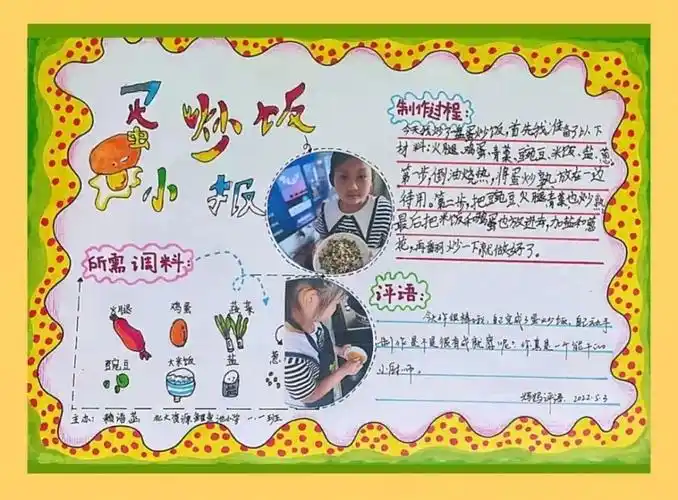 蛋炒饭
小报
制作过程:
今天我炒了蛋炒饭,首先我准备了以下
材料:火腿、鸡蛋、青菜、豌豆、米饭、盐、葱
第一步,倒油烧热,将蛋炒熟放在一边
待用。第二步,把豌豆火腿青菜也炒熟
最后把米饭和鸡蛋也放进去,加盐和葱
花,再翻炒一下就做好了。
所需调料:
火腿 鸡蛋 蔬菜
豌豆 大米饭 盐 葱
评语:
今天你很棒哦,自己完成了蛋炒饭,自己动手
是不是很有成就感呢?你真是一个能干的
小厨师。
妈妈评语 2022.5.3
主办: 小学 一.一班